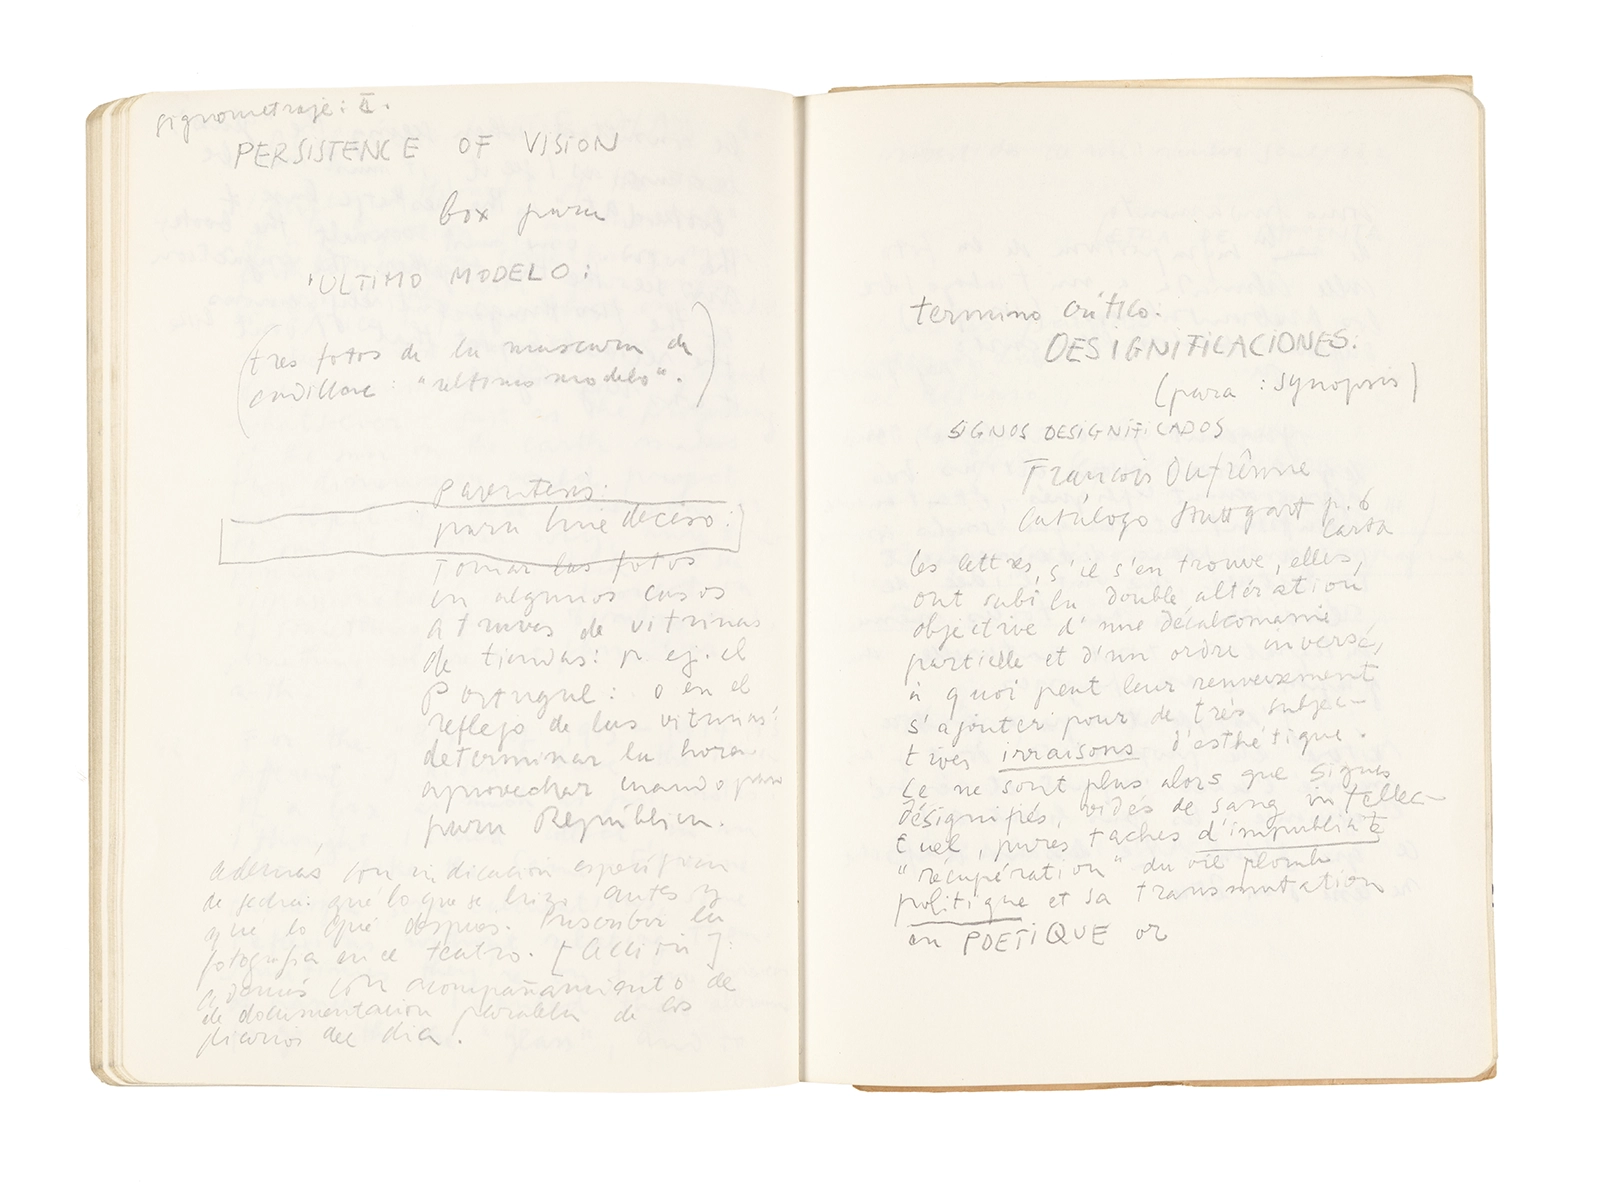 signometraje: II.
PERSISTENCE OF VISION
box para
'ULTIMO MODELO:
(tres fotos de la mascara de
: "ultimo modelo".)
parentesis:
para :
Tomar las fotos
en algunos casos
a traves de vitrinas
de tiendas: p. ej. el
Portugal: o en el
reflejo de las vitrinas:
determinar la hora
aprovechar cuando pasa
para República.
además con indicación específica
de fecha: qué lo que se hizo antes y
que lo qué después. Inscribir la
fotografía en el teatro. [Acción]:
además con acompañamiento de
de documentacion paralela de los
diarios del dia.
termino crítico:
DESIGNIFICACIONES:
(para : Synopsis)
SIGNOS DESIGNIFICADOS
Francois Dufrênne
Catálogo Stuttgart p. 6
carta
les lettres, s'il s'en trouve, elles,
ont subi la double altération
objective d'une décalcomanie
partielle et d'un ordre inversé,
à quoi peut leur renversement
s'ajouter pour de très subjec-
tives irraisons d'esthétique.
Ce ne sont plus alors que signes
désignifiés, vidés de sang intellec-
tuel, pures taches d'impubliate
"récupération" du vil plomb
politique et sa transmutation
en POETIQUE or